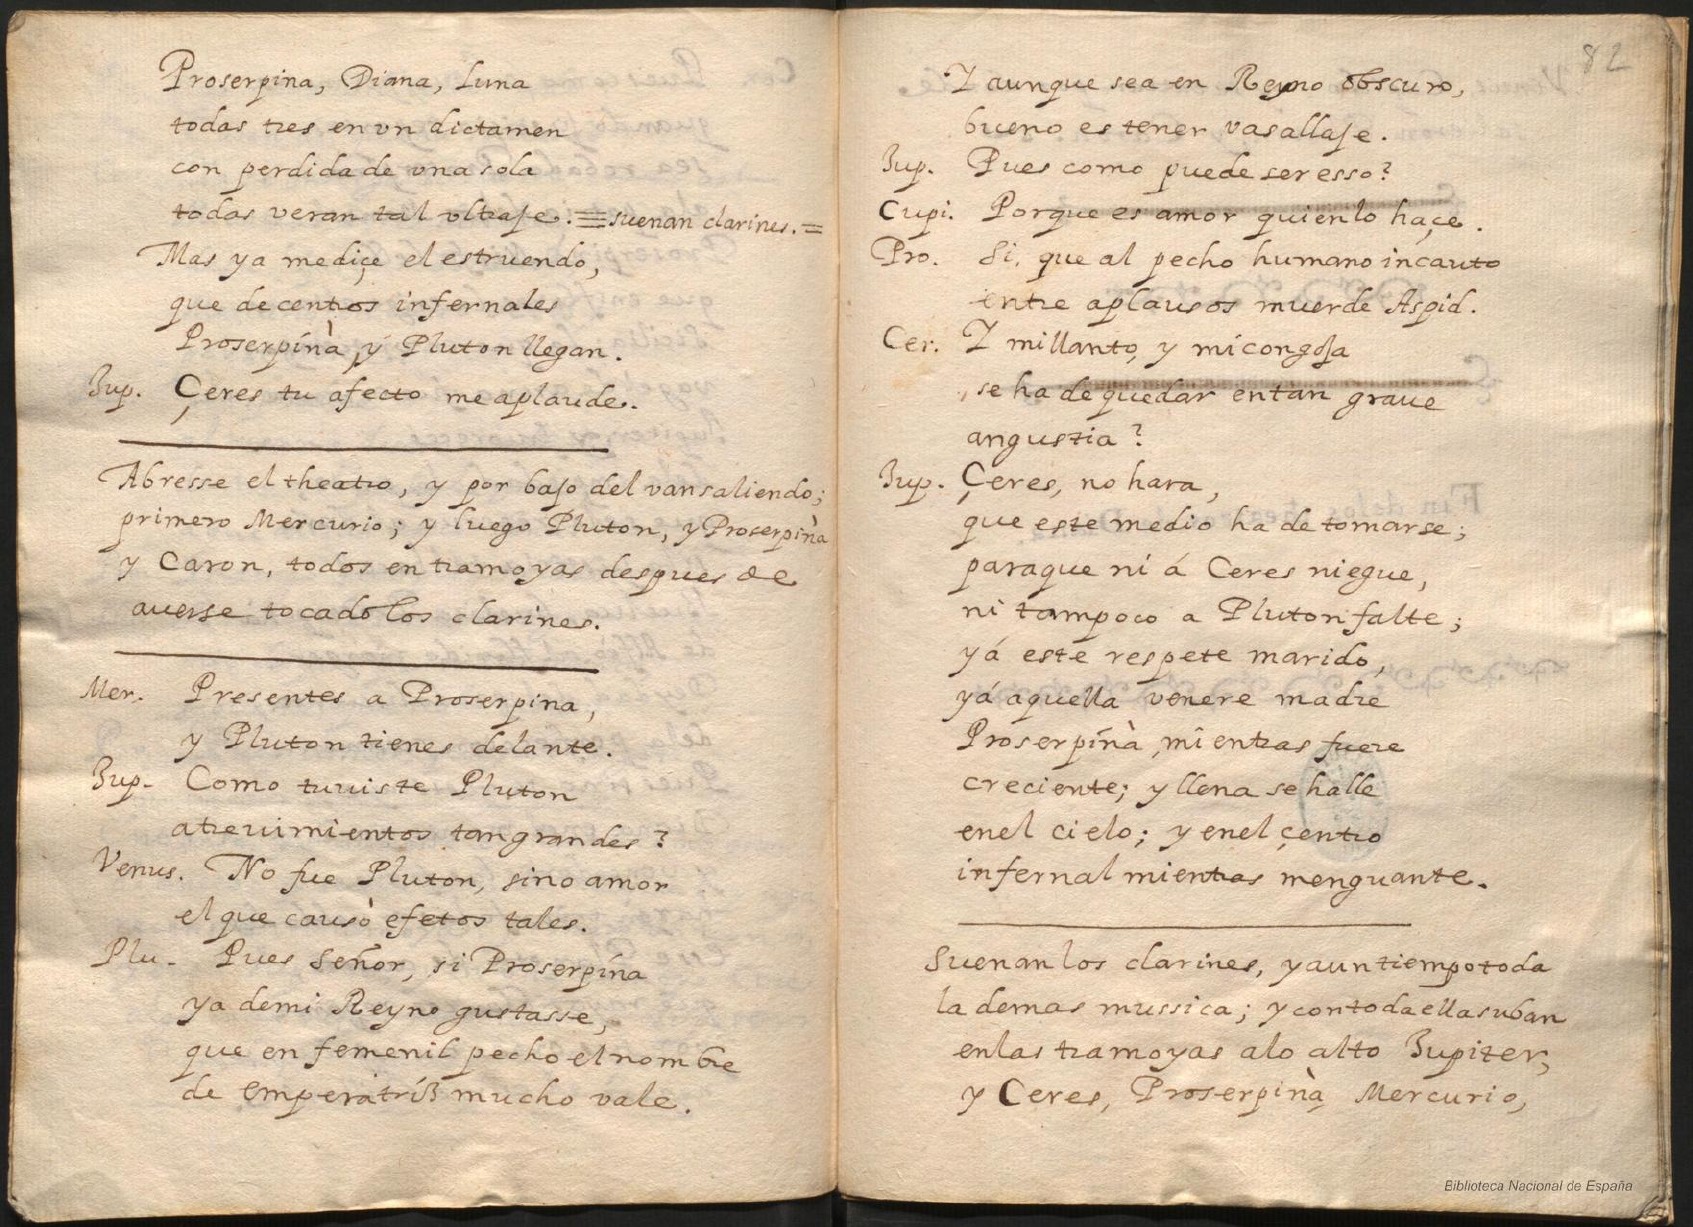 Proserpina, Diana, Luna
todas tres en vn dictamen
con perdida de vna sola
todas veran tal vltraje. = suenan clarines. =
Mas ya me diçe el estruendo,
que de centros infernales
Proserpinà, y Pluton llegan.
Jup. Çeres tu afecto me aplaude.
Abresse el theatro, y por bajo del van saliendo;
primero Mercurio; y luego Pluton, y Proserpinà
y Caron, todos en tramoyas despues de
auerse tocado los clarines.
Mer. Presentes a Proserpina,
y Pluton tienes delante.
Jup. Como tuuiste Pluton
atreuimientos tan grandes?
Venus. No fue Pluton, sino amor
el que causò efetos tales.
Plu. Pues Señor, si Proserpína
ya de mi Reyno gustasse,
que en femenil pecho el nombre
de Emperatríß mucho vale.
82
Y aunque sea en Reyno obscuro,
bueno es tener vasallaje.
Jup. Pues como puede ser esso?
Cupi. Porque es amor quien lo haçe.
Pro. Si, que al pecho humano incauto
entre aplausos muerde Aspid.
Cer. Y mi llanto, y mi congoja
se ha de quedar en tan graue
angustia?
Jup. Çeres, no hara,
que este medio ha de tomarse;
para que ni á Ceres niegue,
ni tampoco a Pluton falte;
yá este respete marido,
yá aquella venere madre
Proserpínà, mientras fuere
creciente; y llena se halle
en el cielo; y en el çentro
infernal mientras menguante.
Suenan los clarines, y a un tiempo toda
la demas mussica; y con toda ella suban
en las tramoyas a lo alto Jupiter,
y Ceres, Proserpinà, Mercurio,
Biblioteca Nacional de España